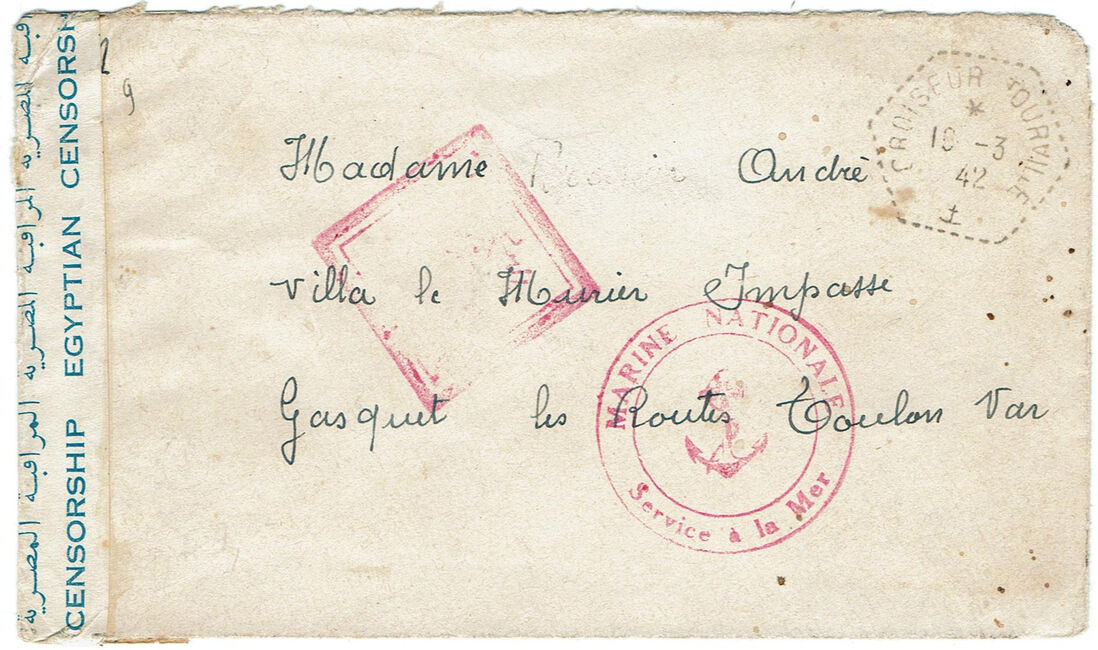 المراقبة المصرية المراقبة المصرية المراقبة المصرية
CENSORSHIP EGYPTIAN CENSORSH
2
9
CROISEUR TOURVILLE
*
18 -3
42
Madame André
Villa le Murier Impasse
Gasquet les Routes Toulon Var
MARINE NATIONALE
Service à la Mer